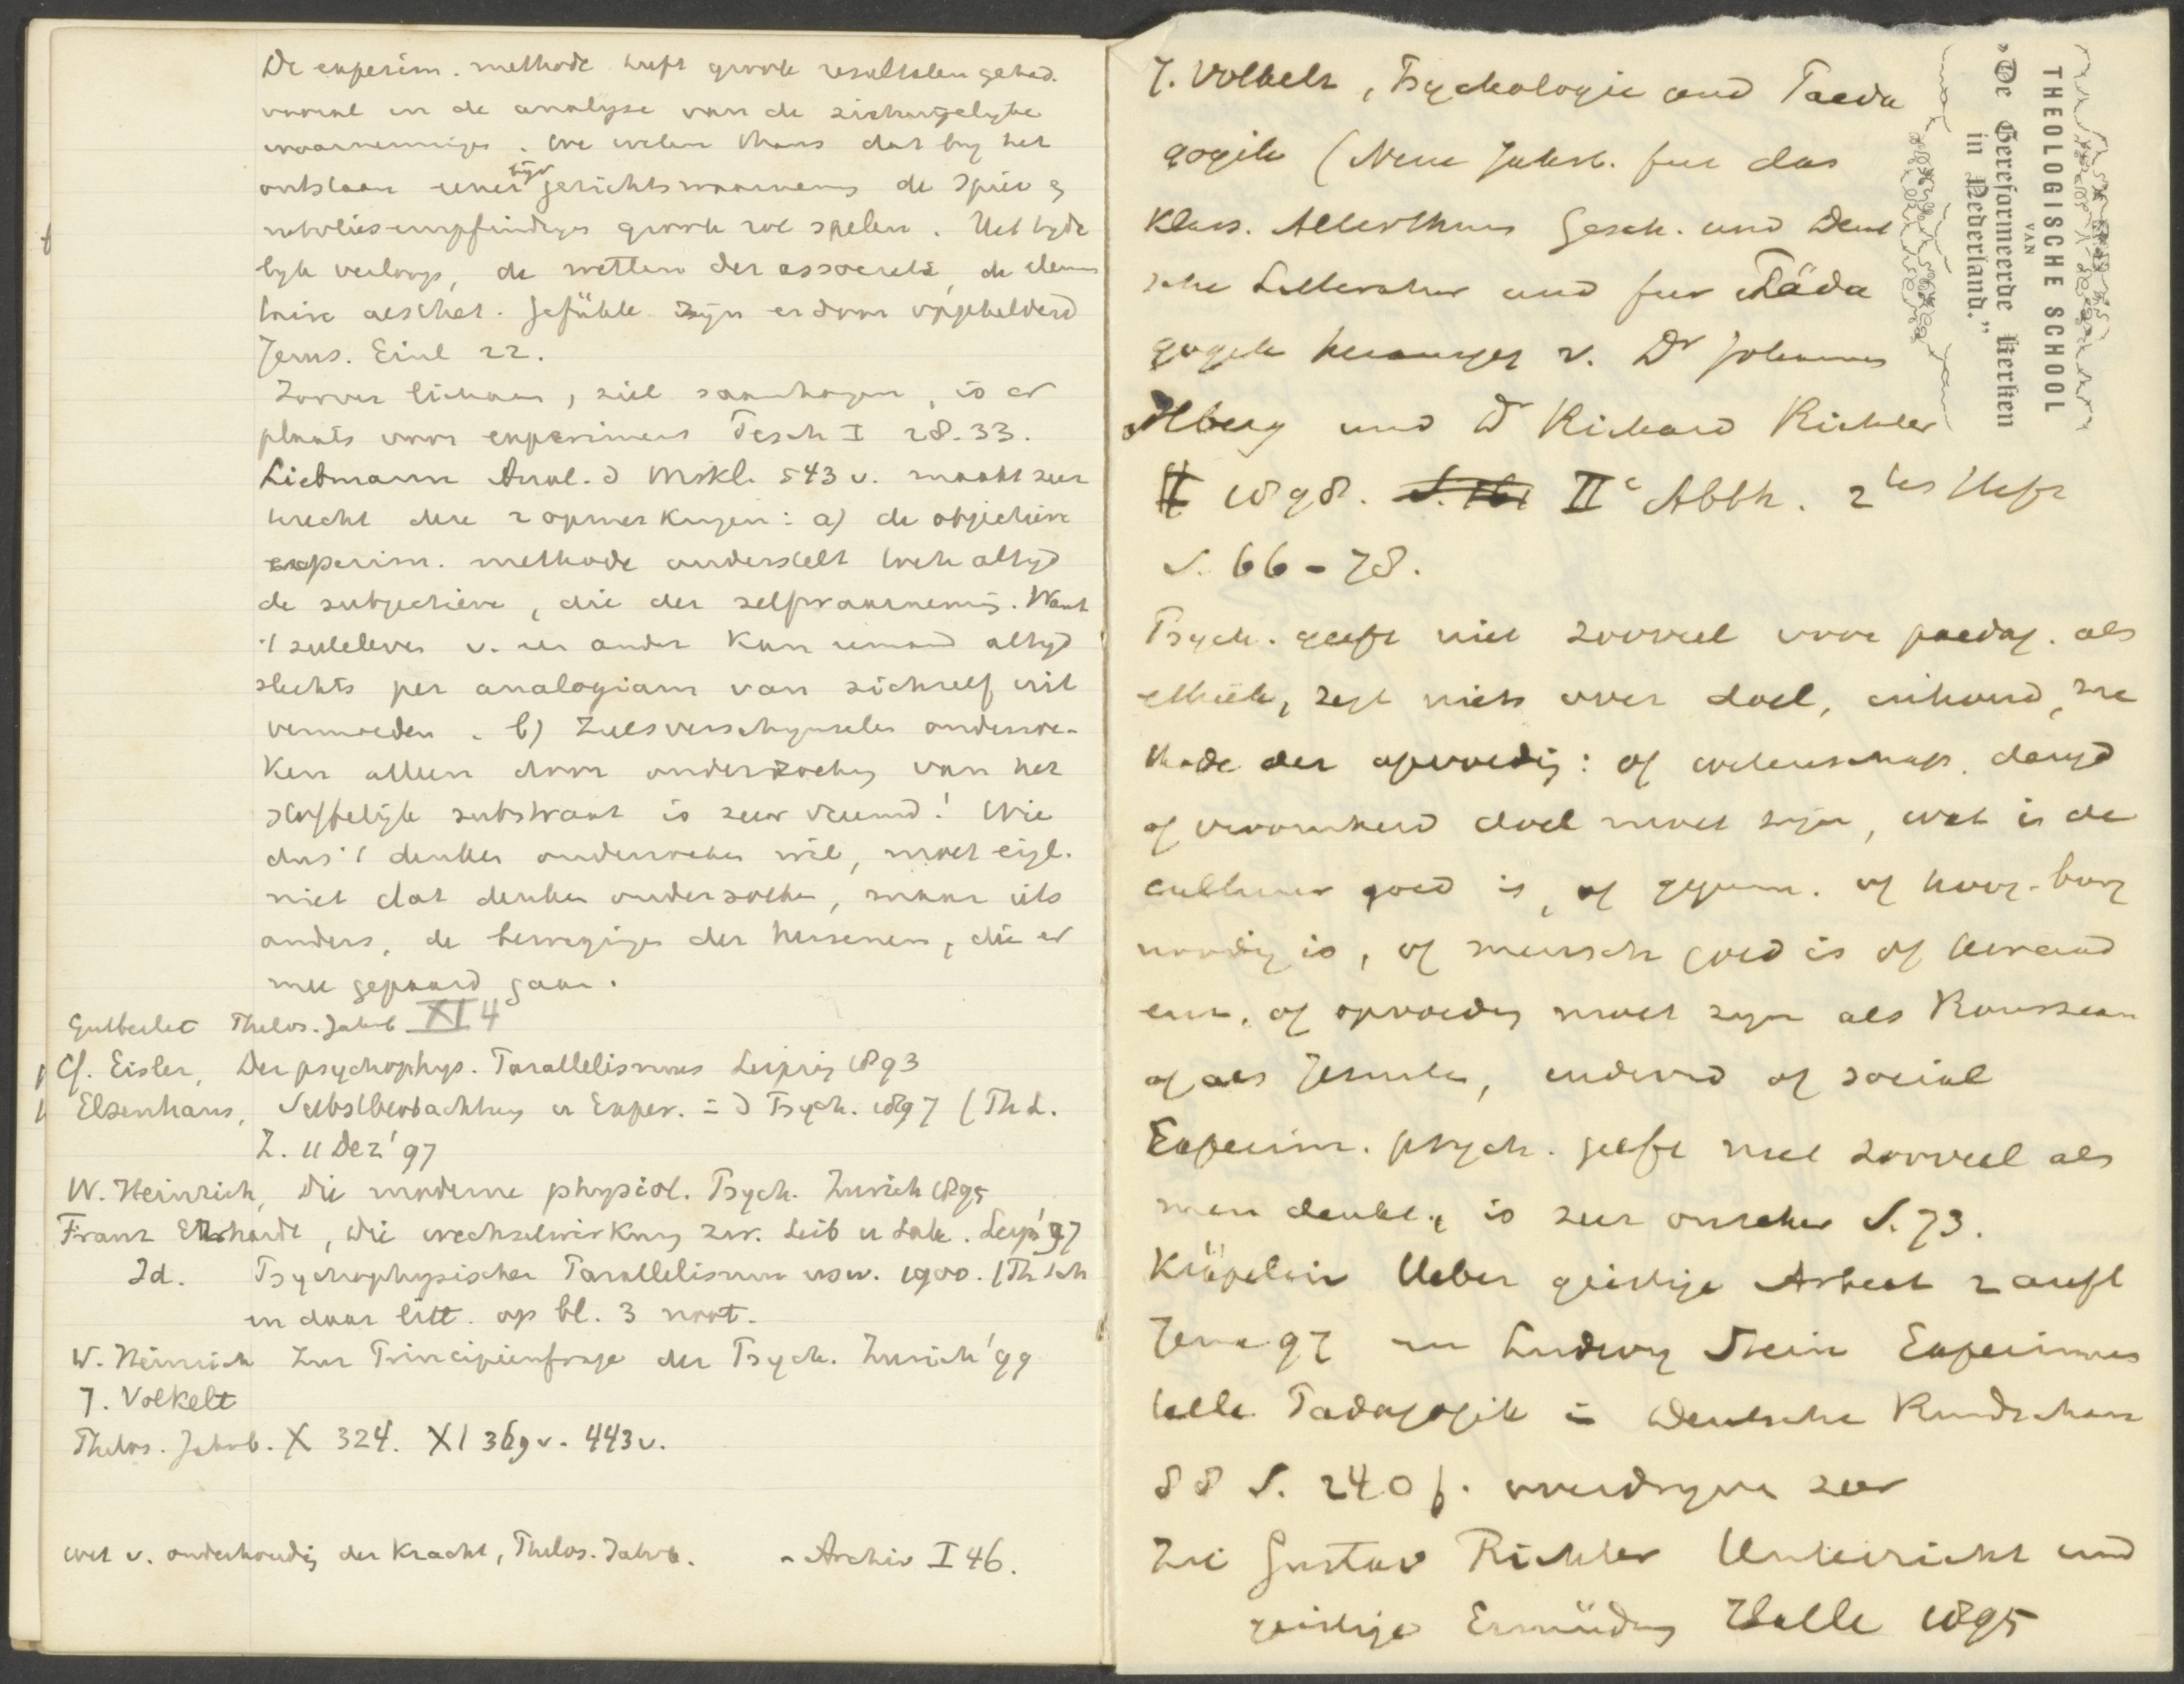 De experim. methode heeft groote resultaten gehad.
vooral in de analyse van de zintuigelyke
waarnemingen. We weten thans dat by het
ontstaan eener bijv gezichtswaarneming de spier en
ontspelen groote rol spelen. Het tyde
lyk verloop, de wetten der associatie, de elemen
taire aesthet. Gefühle zyn erdoor opgehelderd
Jerus. Einl 22.
Zoover lichaam, ziel samenhangen, is er
plaats voor experiment Pesch I 28.33.
Liebmann Anal. d Wirkl. 543 v. maakt zeer
terecht deze 2 opmerkingen: a) de objectieve
experim. methode onderstelt toch altyd
de subjectieve, die der zelfwaarneming. Want
't zieleleven v. een ander kan iemand altyd
slechts per analogiam van zichzelf uit
vermoeden. b) Zielsverschynselen onderzoe-
ken alleen door onderzoeking van het
stoffelijk substraat is zeer vreemd! Wie
dus 't denken onderzoeken wil, moet eigl.
niet dat denken onderzoeken, maar iets
anders, de bewegingen der hersenen, die er
mee gepaard gaan.
Gutberlet Philos. Jahrb. XI 4
Cf. Eisler, Der psychophys. Parallelismus Leipzig 1893
Elsenhans, Selbstbeobachtung u Exper. in d Psych. 1897 (Th L.
Z. 11 Dez '97
W. Heinrich, Die moderne physiol. Psych. Zurich 1895
Franz Erhardt, Die Wechselwirkung zw. Leib u Seele. Leipz '97
Id. Psychophysischer Parallelismus usw. 1900.
en daar litt. op bl. 3 noot.
W. Heinrich Zur Principienfrage der Psych. Zurich '99
J. Volkelt
Philos. Jahrb. X 324. XI 369 v. 443 v.
wet v. onderhouding der kracht, Philos. Jahrb. - Archiv I 46.
THEOLOGISCHE SCHOOL
VAN
„De Gereformeerde Kerken
in Nederland.”
J. Volkelt, Psychologie und Paeda
gogik (Neue Jahrb. fur das
Klass. Alterthum Gesch. und Deut
sche Litteratur und fur Päda
gogik herausgeg v. Dr Johannes
Ilberg und Dr Richard Richter
1898. IIe Abth. 2tes Heft
S. 66-78.
Psych. geeft niet zooveel voor paedag. als
ethiek, zegt niets over doel, inhoud, me
thode der opvoeding: of wetenschap. deugd
of vroomheid doel moet zyn, wat is de
cultuur goed is, of gymn. of hoog. burg
noodig is, of mensch goed is of
, of opvoeding moet zyn als Rousseau
of als Jezuiten, individ of sociaal
Experim. psych. geeft niet zooveel als
men denkt, is zeer onzeker S. 73.
Kräpelin Ueber geistige Arbeit 2 Aufl
Jena 97 en Ludwig Stein Experimen
telle Pädagogik in Deutsche Rundschau
88 S. 240 f. overdryven zeer
Zie Gustav Richter Unterricht und
geistige Ermüdung Halle 1895